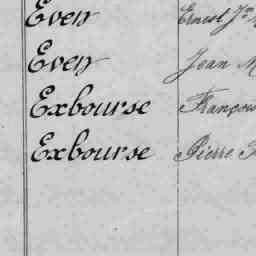 Even Ernest J.
Even Jean M
Exbourse François
Exbourse Pierre